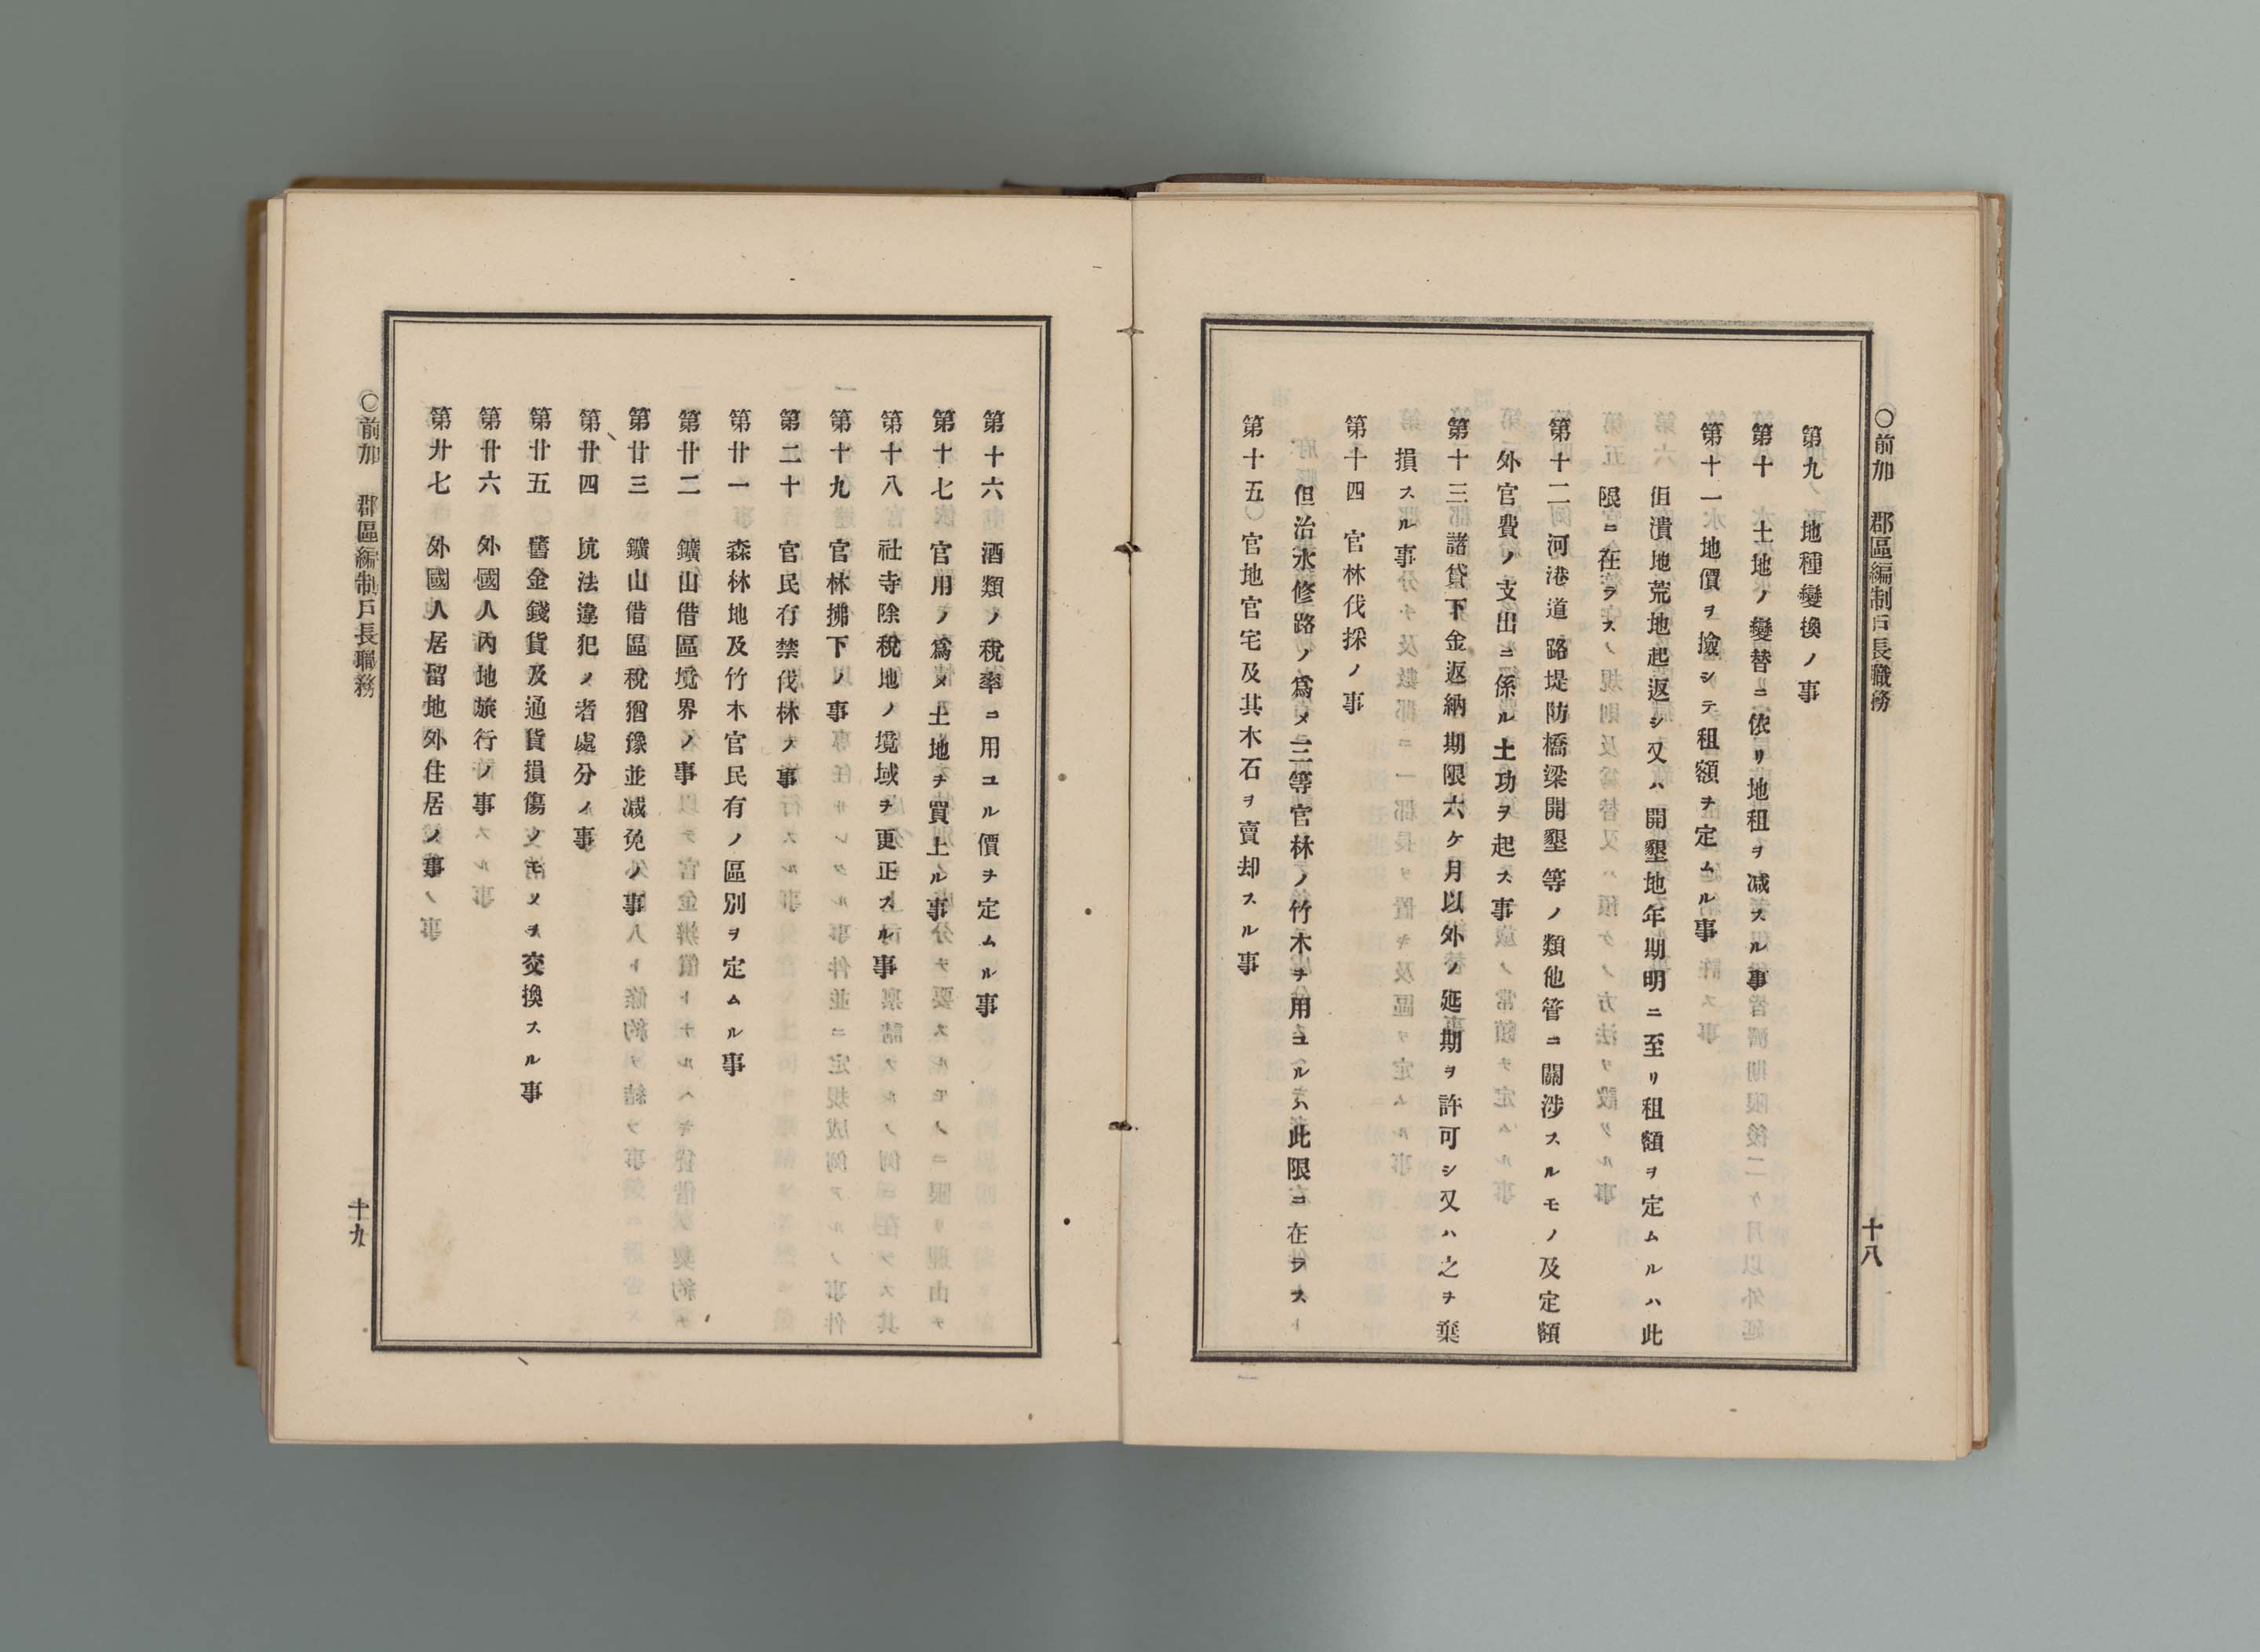 ○前加 郡區編制戶長職務
十八
第九 地種變換ノ事
第十 土地ノ變替ニ依リ地租ヲ減スル事
第十一 地價ヲ撿シテ租額ヲ定ムル事
但潰地荒地起返シ又ハ開墾地年期明ニ至リ租額ヲ定ムルハ此
限ニ在ラス
第十二 河港道路堤防橋梁開墾等ノ類他管ニ關涉スルモノ及定額
外官費ノ支出ニ係ル土功ヲ起ス事
第十三 諸貸下金返納期限六ケ月以外ノ延期ヲ許可シ又ハ之ヲ棄
損スル事
第十四 官林伐採ノ事
但治水修路ノ爲メ三等官林ノ竹木ヲ用ユルハ此限ニ在ラス
第十五 官地官宅及其木石ヲ賣却スル事
第十六 酒類ノ稅率ニ用ユル價ヲ定ムル事
第十七 官用ノ爲メ土地ヲ買上ル事
第十八 社寺除稅地ノ境域ヲ更正スル事
第十九 官林拂下ノ事
第二十 官民有禁伐林ノ事
第廿一 森林地及竹木官民有ノ區別ヲ定ムル事
第廿二 鑛山借區境界ノ事
第廿三 鑛山借區稅猶豫並減免ノ事
第廿四 坑法違犯ノ者處分ノ事
第廿五 舊金錢貨及通貨損傷ノモノヲ交換スル事
第廿六 外國人內地旅行ノ事
第廿七 外國人居留地外住居ノ事
○前加 郡區編制戶長職務
十九